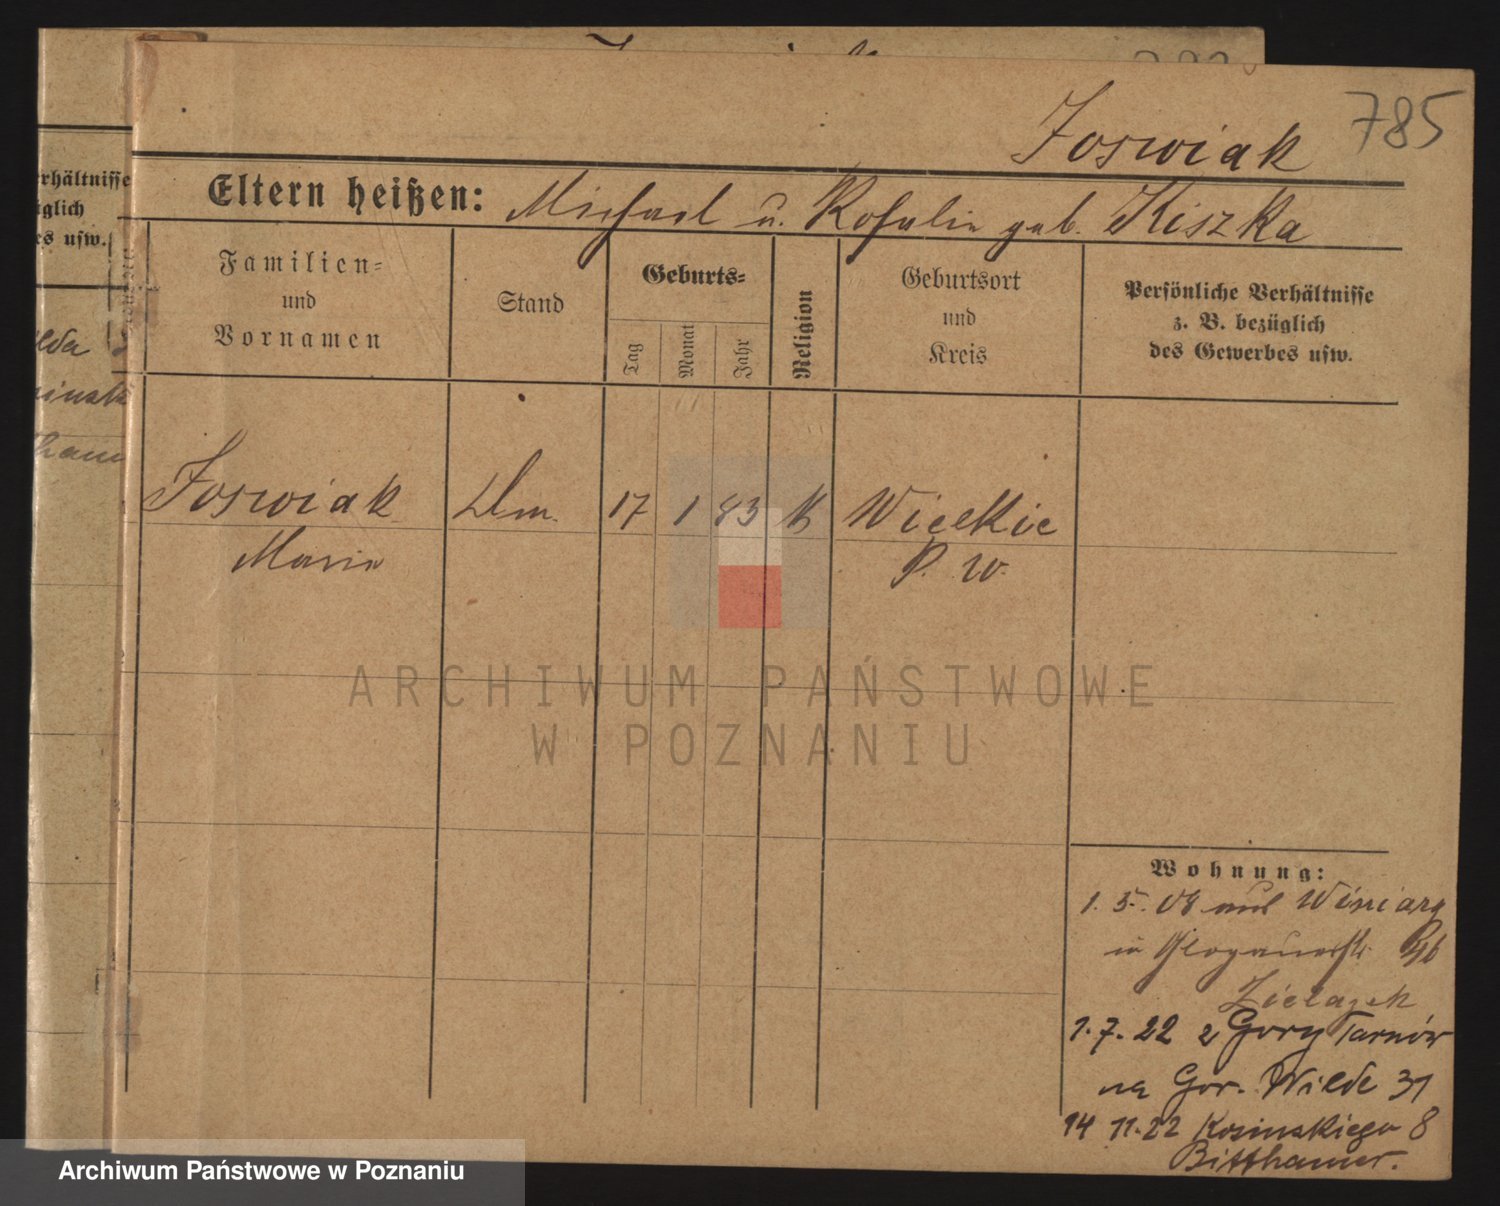 785
Joswiak
Eltern heißen: Michael u. Rosalie geb. Kiszka
Familien= und Vornamen
Stand
Geburts=
Tag
Monat
Jahr
Religion
Geburtsort und Kreis
Persönliche Verhältnisse
z. B. bezüglich
des Gewerbes usw.
Joswiak 17 1 83 K Wielkie
Marie P. W.
Wohnung:
1. 5. 08 aus Winiary
in Glogauerstr.
1.7.22 z Gory Tarnów
na Gór. Wilde 31
14 11.22 Kosinskiego 8
Bitthauer.
erhältnisse
üglich
es usw.
ARCHIWUM PAŃSTWOWE
W POZNANIU
Archiwum Państwowe w Poznaniu